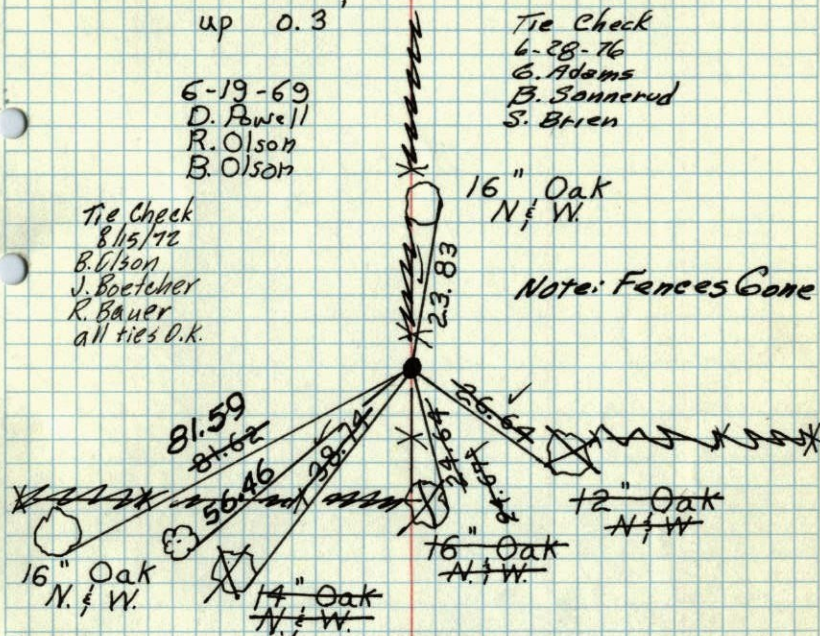 up 0.3'
6-19-69
D. Powell
R. Olson
B. Olson
Tie Check
6-28-76
G. Adams
B. Sonnerud
S. Brien
Tie Check
8/15/72
B. Olson
J. Boetcher
R. Bauer
all ties O.K.
16" Oak
N & W.
23.83
Note: Fences Gone
81.59
81.62
56.46
38.74
24.64
26.64
12" Oak
N & W
16" Oak
N. & W.
16" Oak
N. & W.
14" Oak
N & W.